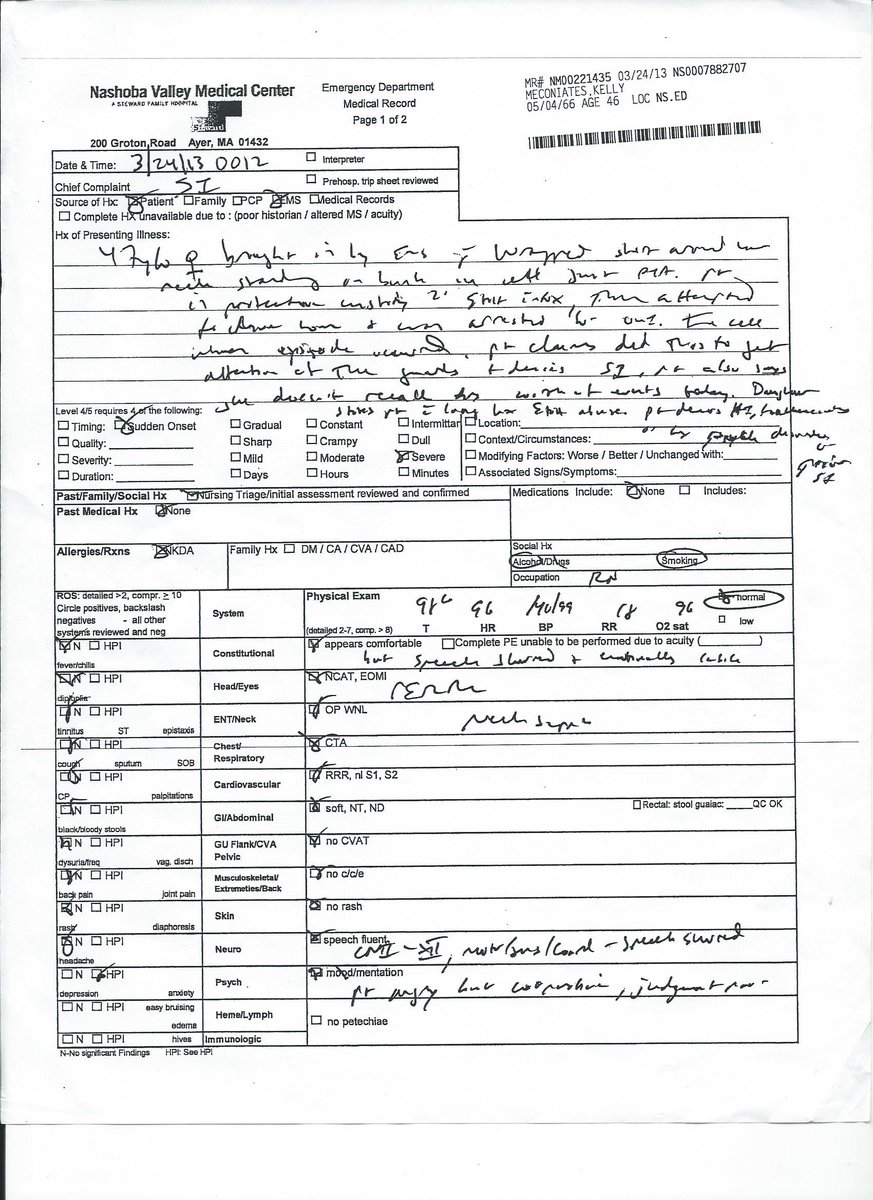 Nashoba Valley Medical Center
A STEWARD FAMILY HOSPITAL
Steward
200 Groton Road Ayer, MA 01432
Emergency Department
Medical Record
Page 1 of 2
MR# NM00221435 03/24/13 NS0007882707
MECONIATES,KELLY
05/04/66 AGE 46 LOC NS.ED
Date & Time: 3/24/13 0012
Interpreter
Chief Complaint SI
Prehosp. trip sheet reviewed
Source of Hx: Patient Family PCP EMS Medical Records
Complete HX unavailable due to : (poor historian / altered MS / acuity)
Hx of Presenting Illness:
47 y/o ♀ brought in by EMS wrapped shirt around her
neck standing on bunk in cell just PTA. pt
in protective custody 2° , then attempted
to home & was arrested for OUI. The cell
where episode occurred. pt claims did this to get
attention of the guards & denies SI, pt also says
she doesn't recall events today. Daughter
states pt long hx EtOH abuse. pt denies HI,
Level 4/5 requires 4 of the following:
Timing: Sudden Onset Gradual Constant Intermittan Location:
Quality: Sharp Crampy Dull Context/Circumstances:
Severity: Mild Moderate Severe Modifying Factors: Worse / Better / Unchanged with:
Duration: Days Hours Minutes Associated Signs/Symptoms:
Past/Family/Social Hx Nursing Triage/initial assessment reviewed and confirmed
Medications Include: None Includes:
Past Medical Hx None
Allergies/Rxns NKDA
Family Hx DM / CA / CVA / CAD
Social Hx
Alcohol/Drugs Smoking
Occupation RN
ROS: detailed >2, compr. ≥ 10
Circle positives, backslash
negatives - all other
system's reviewed and neg
System
Physical Exam
98⁶ 96 140/99 18 96 normal
(detailed 2-7, comp. > 8) T HR BP RR O2 sat low
N HPI
fever/chills
Constitutional
appears comfortable Complete PE unable to be performed due to acuity ( )
but speech slurred & emotionally labile
N HPI
diplopia
Head/Eyes
NCAT, EOMI
PERRL
N HPI
tinnitus ST epistaxis
ENT/Neck
OP WNL
neck supple
N HPI
cough sputum SOB
Chest/
Respiratory
CTA
N HPI
CP palpitations
Cardiovascular
RRR, nl S1, S2
N HPI
black/bloody stools
GI/Abdominal
soft, NT, ND
Rectal: stool guaiac: _____QC OK
N HPI
dysuria/freq vag. disch
GU Flank/CVA
Pelvic
no CVAT
N HPI
back pain joint pain
Musculoskeletal/
Extremeties/Back
no c/c/e
N HPI
rash diaphoresis
Skin
no rash
N HPI
headache
Neuro
speech fluent
CN II-XII, motor/sens/coord - speech slurred
N HPI
depression anxiety
Psych
mood/mentation
pt angry but cooperative, judgment poor
N HPI easy bruising
edema
Heme/Lymph
no petechiae
N HPI hives
Immunologic
N-No significant Findings HPI: See HPI